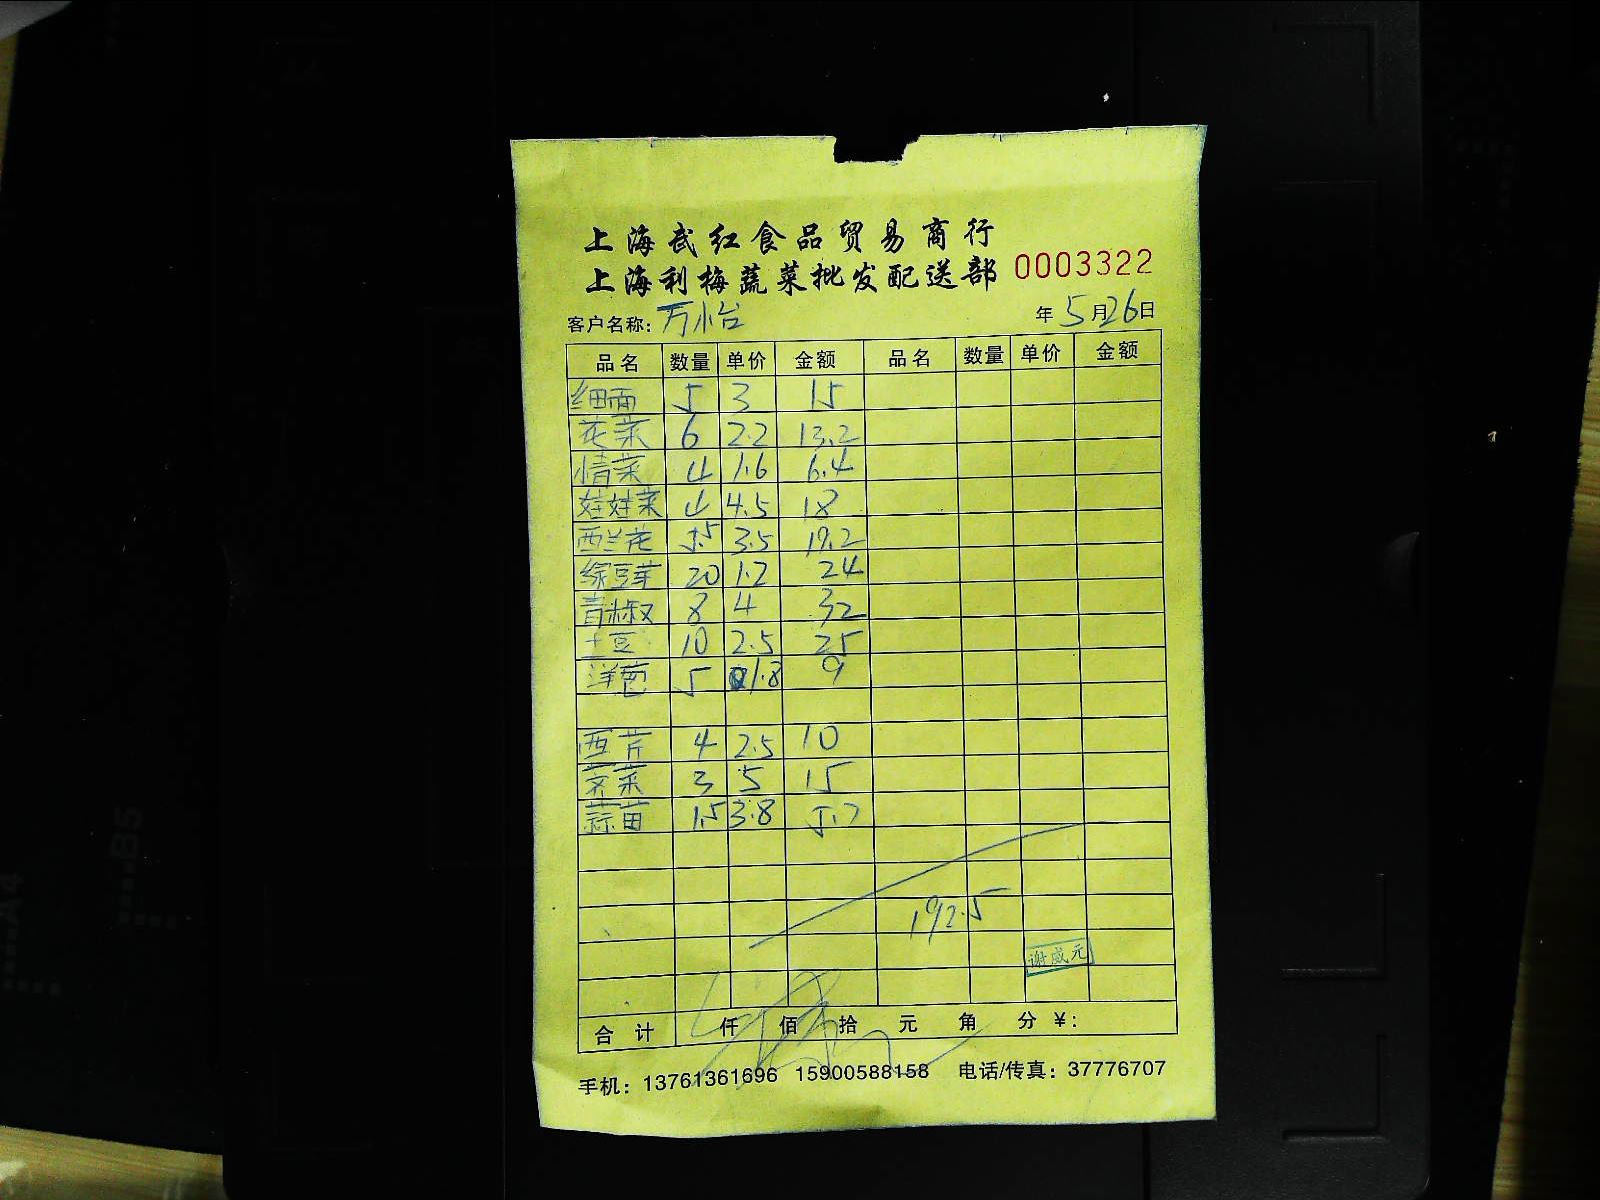 上海武红食品贸易商行
上海利梅蔬菜批发配送部 0003322
客户名称: 万怡 年 5 月 26 日
品名 数量 单价 金额 品名 数量 单价 金额
细面 5 3 15
花菜 6 2.2 13.2
情菜 4 1.6 6.4
娃娃菜 4 4.5 18
西兰花 5.5 3.5 19.2
绿豆芽 20 1.2 24
青椒 8 4 32
土豆 10 2.5 25
洋葱 5 1.8 9
西芹 4 2.5 10
荠菜 3 5 15
蒜苗 1.5 3.8 5.7
192.5
谢威元
合计 仟 佰 拾 元 角 分 ¥:
手机: 13761361696 15900588158 电话/传真: 37776707
A4
B5